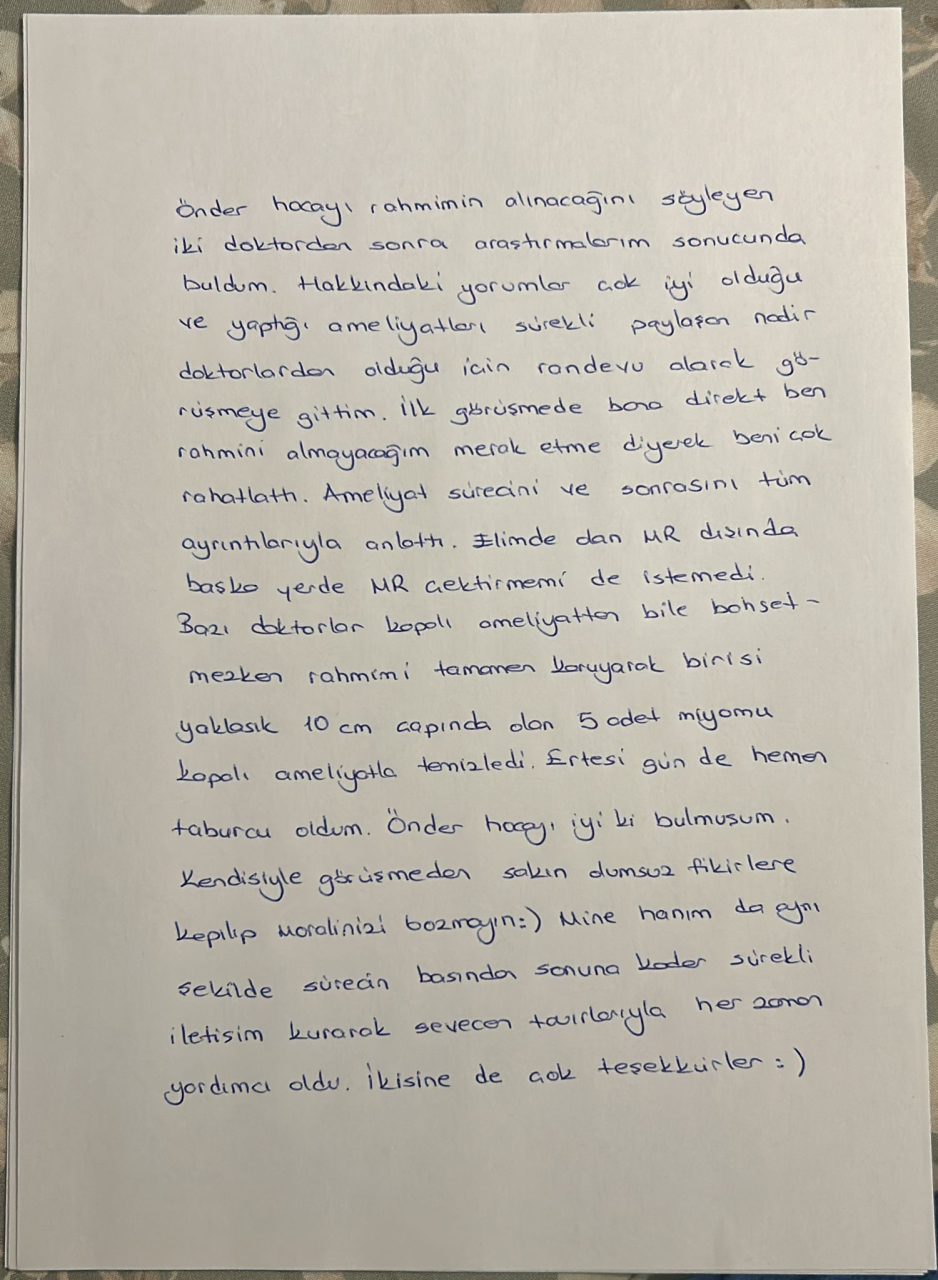 Önder hocayı rahmimin alınacağını söyleyen
iki doktordan sonra araştırmalarım sonucunda
buldum. Hakkındaki yorumlar çok iyi olduğu
ve yaptığı ameliyatları sürekli paylaşan nadir
doktorlardan olduğu için randevu alarak gö-
rüşmeye gittim. İlk görüşmede bana direkt ben
rahmini almayacağım merak etme diyerek beni çok
rahatlattı. Ameliyat sürecini ve sonrasını tüm
ayrıntılarıyla anlattı. Elimde olan MR dışında
başka yerde MR çektirmemi de istemedi.
Bazı doktorlar kapalı ameliyattan bile bahset-
mezken rahmimi tamamen koruyarak birisi
yaklaşık 10 cm çapında olan 5 adet miyomu
kapalı ameliyatla temizledi. Ertesi gün de hemen
taburcu oldum. Önder hocayı iyi ki bulmuşum.
Kendisiyle görüşmeden sakın olumsuz fikirlere
kapılıp moralinizi bozmayın:) Mine hanım da aynı
şekilde sürecin başından sonuna kadar sürekli
iletişim kurarak sevecen tavırlarıyla her zaman
yardımcı oldu. İkisine de çok teşekkürler :)